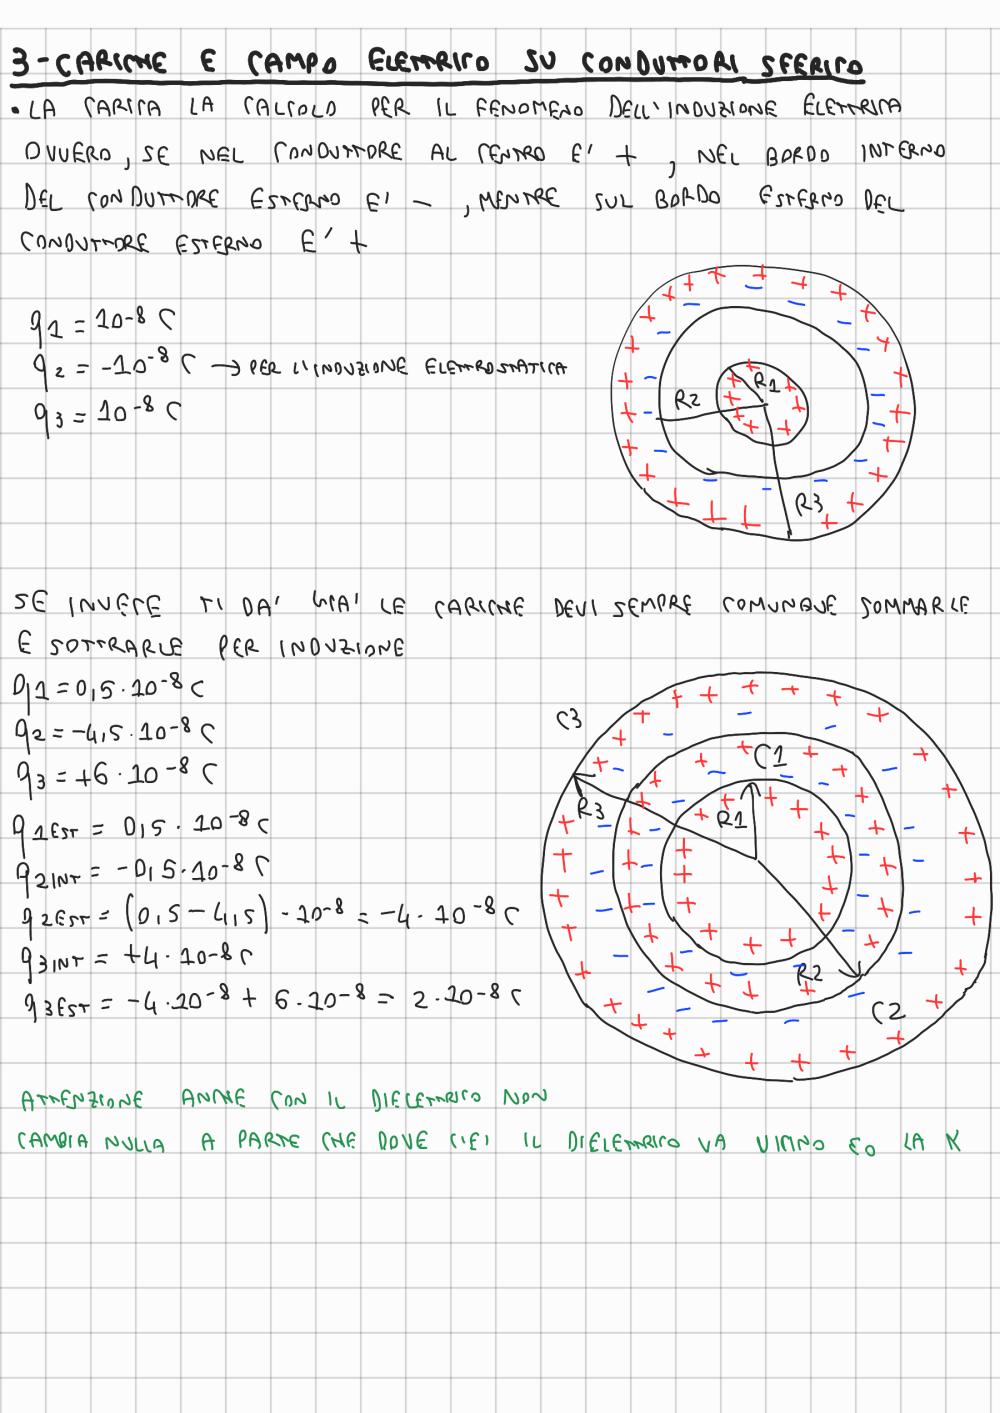 3-CARICHE E CAMPO ELETTRICO SU CONDUTTORI SFERICO
• LA CARICA LA CALCOLO PER IL FENOMENO DELL'INDUZIONE ELETTRICA
OVVERO, SE NEL CONDUTTORE AL CENTRO E' +, NEL BORDO INTERNO
DEL CONDUTTORE ESTERNO E' -, MENTRE SUL BORDO ESTERNO DEL
CONDUTTORE ESTERNO E' +
q1 = 10-8 C
q2 = -10-8 C → PER L'INDUZIONE ELETTROSTATICA
q3 = 10-8 C
R1
R2
R3
SE INVECE TI DA' GIA' LE CARICHE DEVI SEMPRE COMUNQUE SOMMARLE
E SOTTRARLE PER INDUZIONE
q1 = 0,5 · 10-8 C
q2 = -4,5 · 10-8 C
q3 = +6 · 10-8 C
q1EST = 0,5 · 10-8 C
q2INT = -0,5 · 10-8 C
q2EST = (0,5 - 4,5) · 10-8 = -4 · 10-8 C
q3INT = +4 · 10-8 C
q3EST = -4 · 10-8 + 6 · 10-8 = 2 · 10-8 C
C3
C1
R3
R1
R2
C2
ATTENZIONE ANCHE CON IL DIELETTRICO NON
CAMBIA NULLA A PARTE CHE DOVE C'E' IL DIELETTRICO VA VICINO ε0 LA K